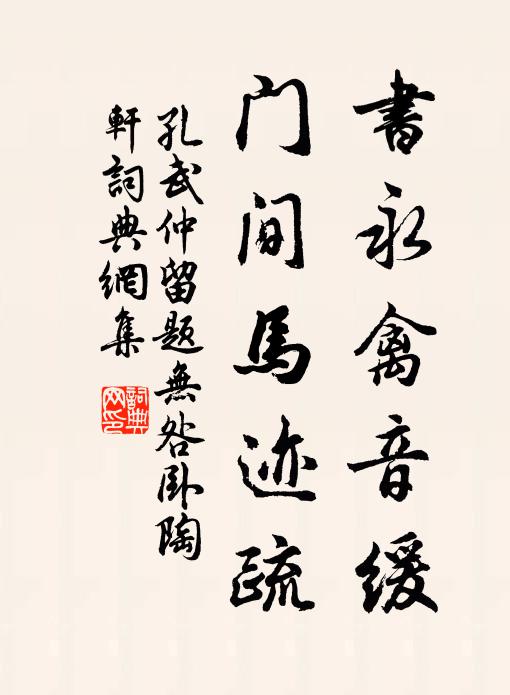 書永禽音缓
门间馬迹疏
孔武仲留题無咎卧陶
軒詞典網集
詞典
网印